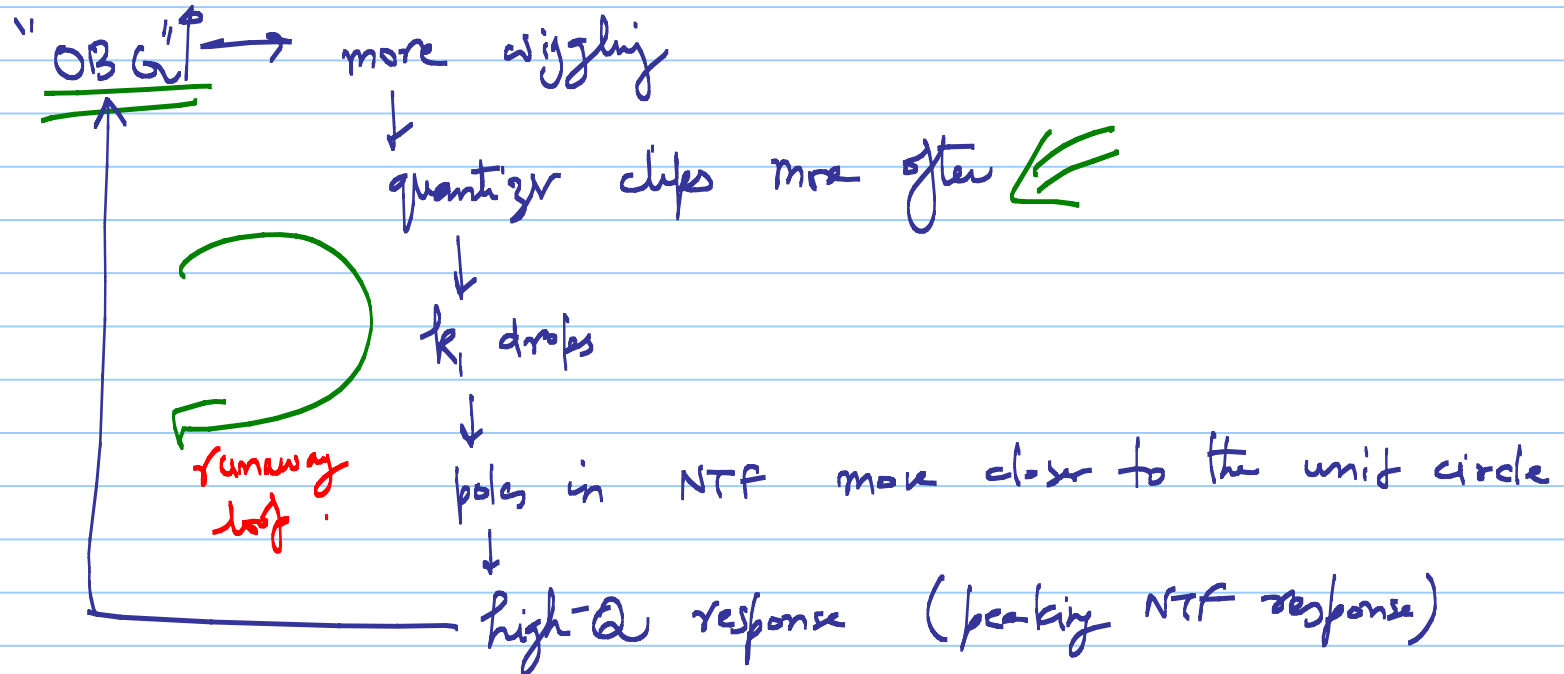 "OBG"↑ → more wiggling
↓
quantizr clips more often
↓
k₁ drops
↓
runaway loop.
poles in NTF move closer to the unit circle
↓
high-Q response (peaking NTF response)